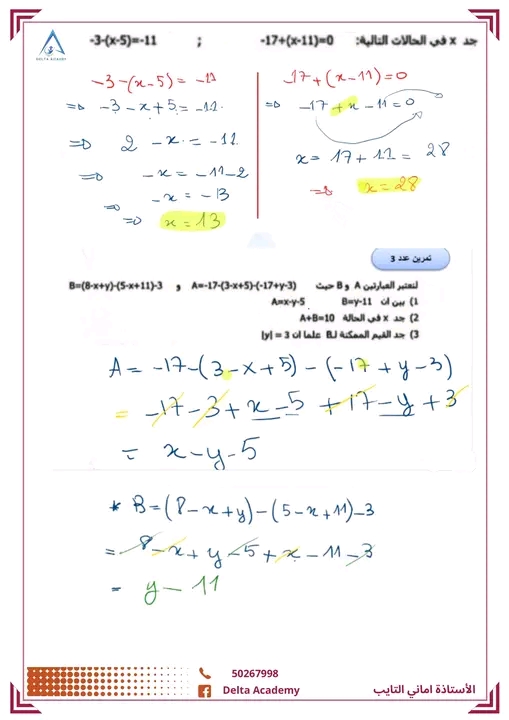 DELTA ACADEMY
جد x في الحالات التالية: -17+(x-11)=0 ; -3-(x-5)=-11
-3-(x-5)=-11
⇒ -3-x+5=-11
⇒ 2 -x=-11
⇒ -x=-11-2
⇒ -x=-13
⇒ x=13
17+(x-11)=0
⇒ -17+x-11=0
x=17+11=28
⇒ x=28
تمرين عدد 3
لنعتبر العبارتين A و B حيث A=-17-(3-x+5)-(-17+y-3) و B=(8-x+y)-(5-x+11)-3
1) بين ان B=y-11 A=x-y-5
2) جد x في الحالة A+B=10
3) جد القيم الممكنة لـB علما ان |y| = 3
A = -17-(3-x+5)-(-17+y-3)
= -17-3+x-5+17-y+3
= x-y-5
* B=(8-x+y)-(5-x+11)-3
= 8-x+y-5+x-11-3
= y-11
50267998
Delta Academy
الأستاذة اماني التايب